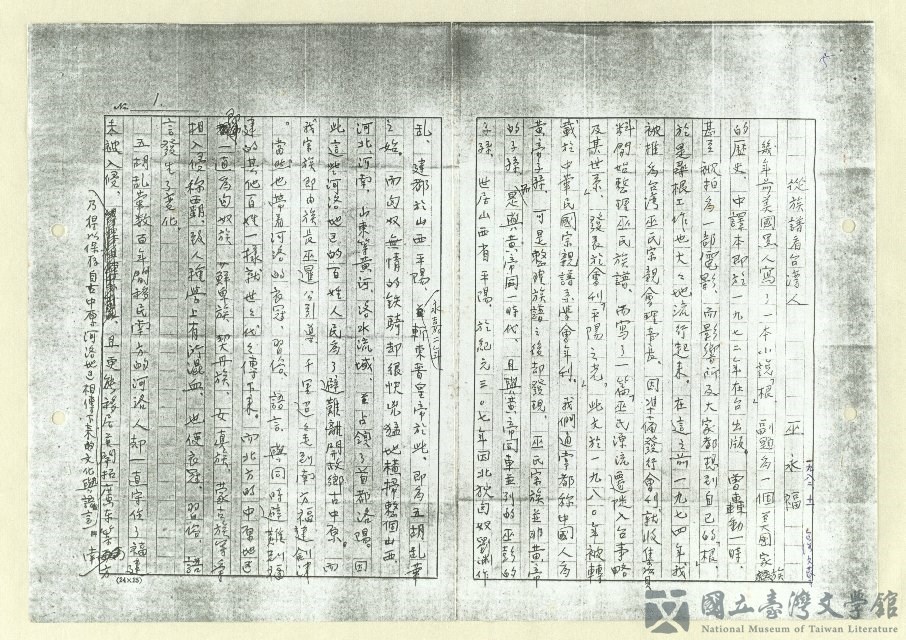 從族譜看台灣人
巫永福
幾年前美國黑人寫了一本小說「根」副題為一個美國家族
的歷史，中譯本即於一九七二年在台出版。曾轟動一時，
甚至被拍為一部電影，而影響所及大家都想到自己的「根」
於是尋根工作也大大地流行起來。在這之前一九七四年我
被推為台灣巫氏宗親會理事長，因準備發行會刊就收集資
料開始整理巫氏族譜，而寫了一篇「巫氏源流遷徙入台事略
及其世系」，發表於會刊「平陽之光」，此文於一九八〇年被轉
載於中華民國宗親譜系學會年刊。我們通常都稱中國人為
黃帝子孫，可是整理族譜之後却發現，巫氏宗族並非黃帝
的子孫，而是與黃帝同一時代，且與黃帝同車並列的巫彭的
子孫。世居山西省平陽，於紀元三〇七年因北狄匈奴劉淵作
亂，建都於山西平陽，永嘉二年斬束晋皇帝於此，即為五胡乱華
之始。而匈奴無情的铁騎却很快兇猛地橫掃整個山西，
河北河南，山東等黃河，洛水流域，並占領了首都洛陽，因
此這些河洛地區的百姓人民為了避難離開故鄉古中原。而
我宗族即由族長巫暹公引導，千里迢迢走到南方福建劍津
。當然也帶着河洛的衣冠，習俗，語言與同時避難到福
建的其他百姓一樣就世世代代傳下來。而北方的中原地區
却一直為匈奴族，鮮卑族，契丹族，女真族，蒙古族等等
相入侵稱霸，致人種学上有所混血，也使衣冠，習俗，語
言發生了变化。
五胡乱華数百年間移民南方的河洛人却一直守住了福建
未被入侵，且更能移居並開拓廣东等南方
乃得以保存自古中原河洛地區相傳下來的文化與語言。
No. 1.
(24×25)
國立臺灣文學館
National Museum of Taiwan Literature